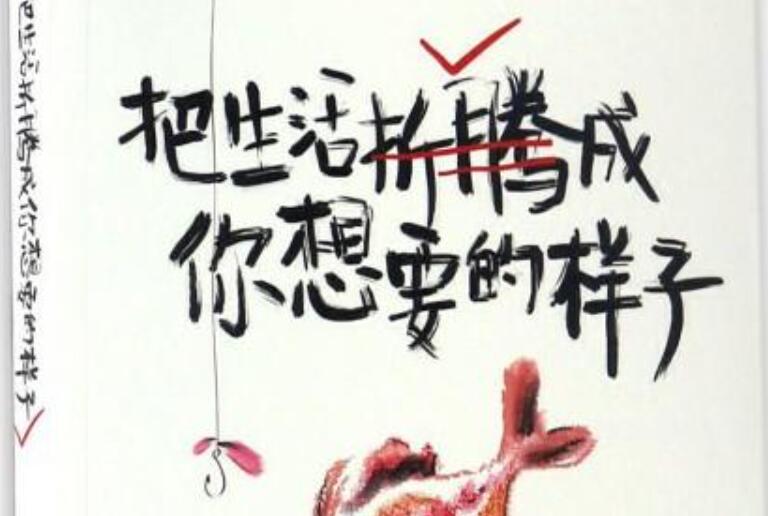 把生活折腾成
你想要的样子
把生活折腾成你想要的样子